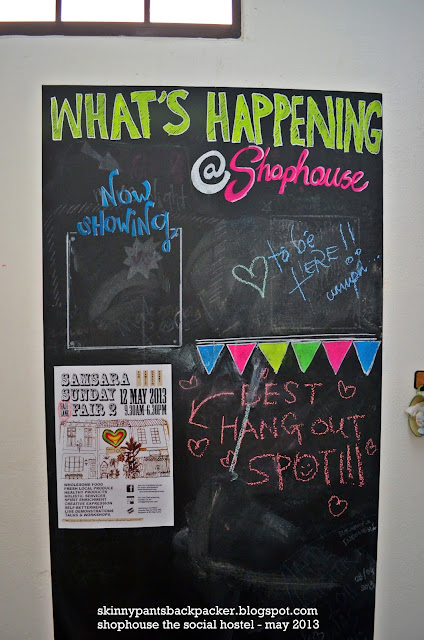 WHAT'S HAPPENING
@ Shophouse
NOW
SHOWING
♡ to be
HERE!!
BEST
HANG OUT
SPOT!!!
SAMSARA
SUNDAY
FAIR 2
12 MAY 2013
9.30AM-6.30PM
WHOLESOME FOOD
FRESH LOCAL PRODUCE
HEALTHY PRODUCTS
HOLISTIC SERVICES
SPIRIT ENRICHMENT
CREATIVE EXPRESSION
SELF-BETTERMENT
LIVE DEMONSTRATIONS
TALKS & WORKSHOPS
skinnypantsbackpacker.blogspot.com
shophouse the social hostel - may 2013